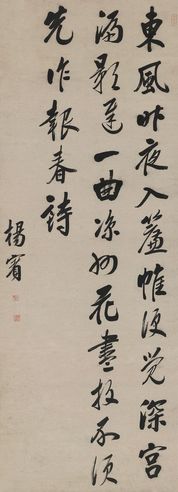 東風昨夜入簾帷便覺深宮
漏影遲一曲涼州花盡放不須
先作報春詩
楊賓